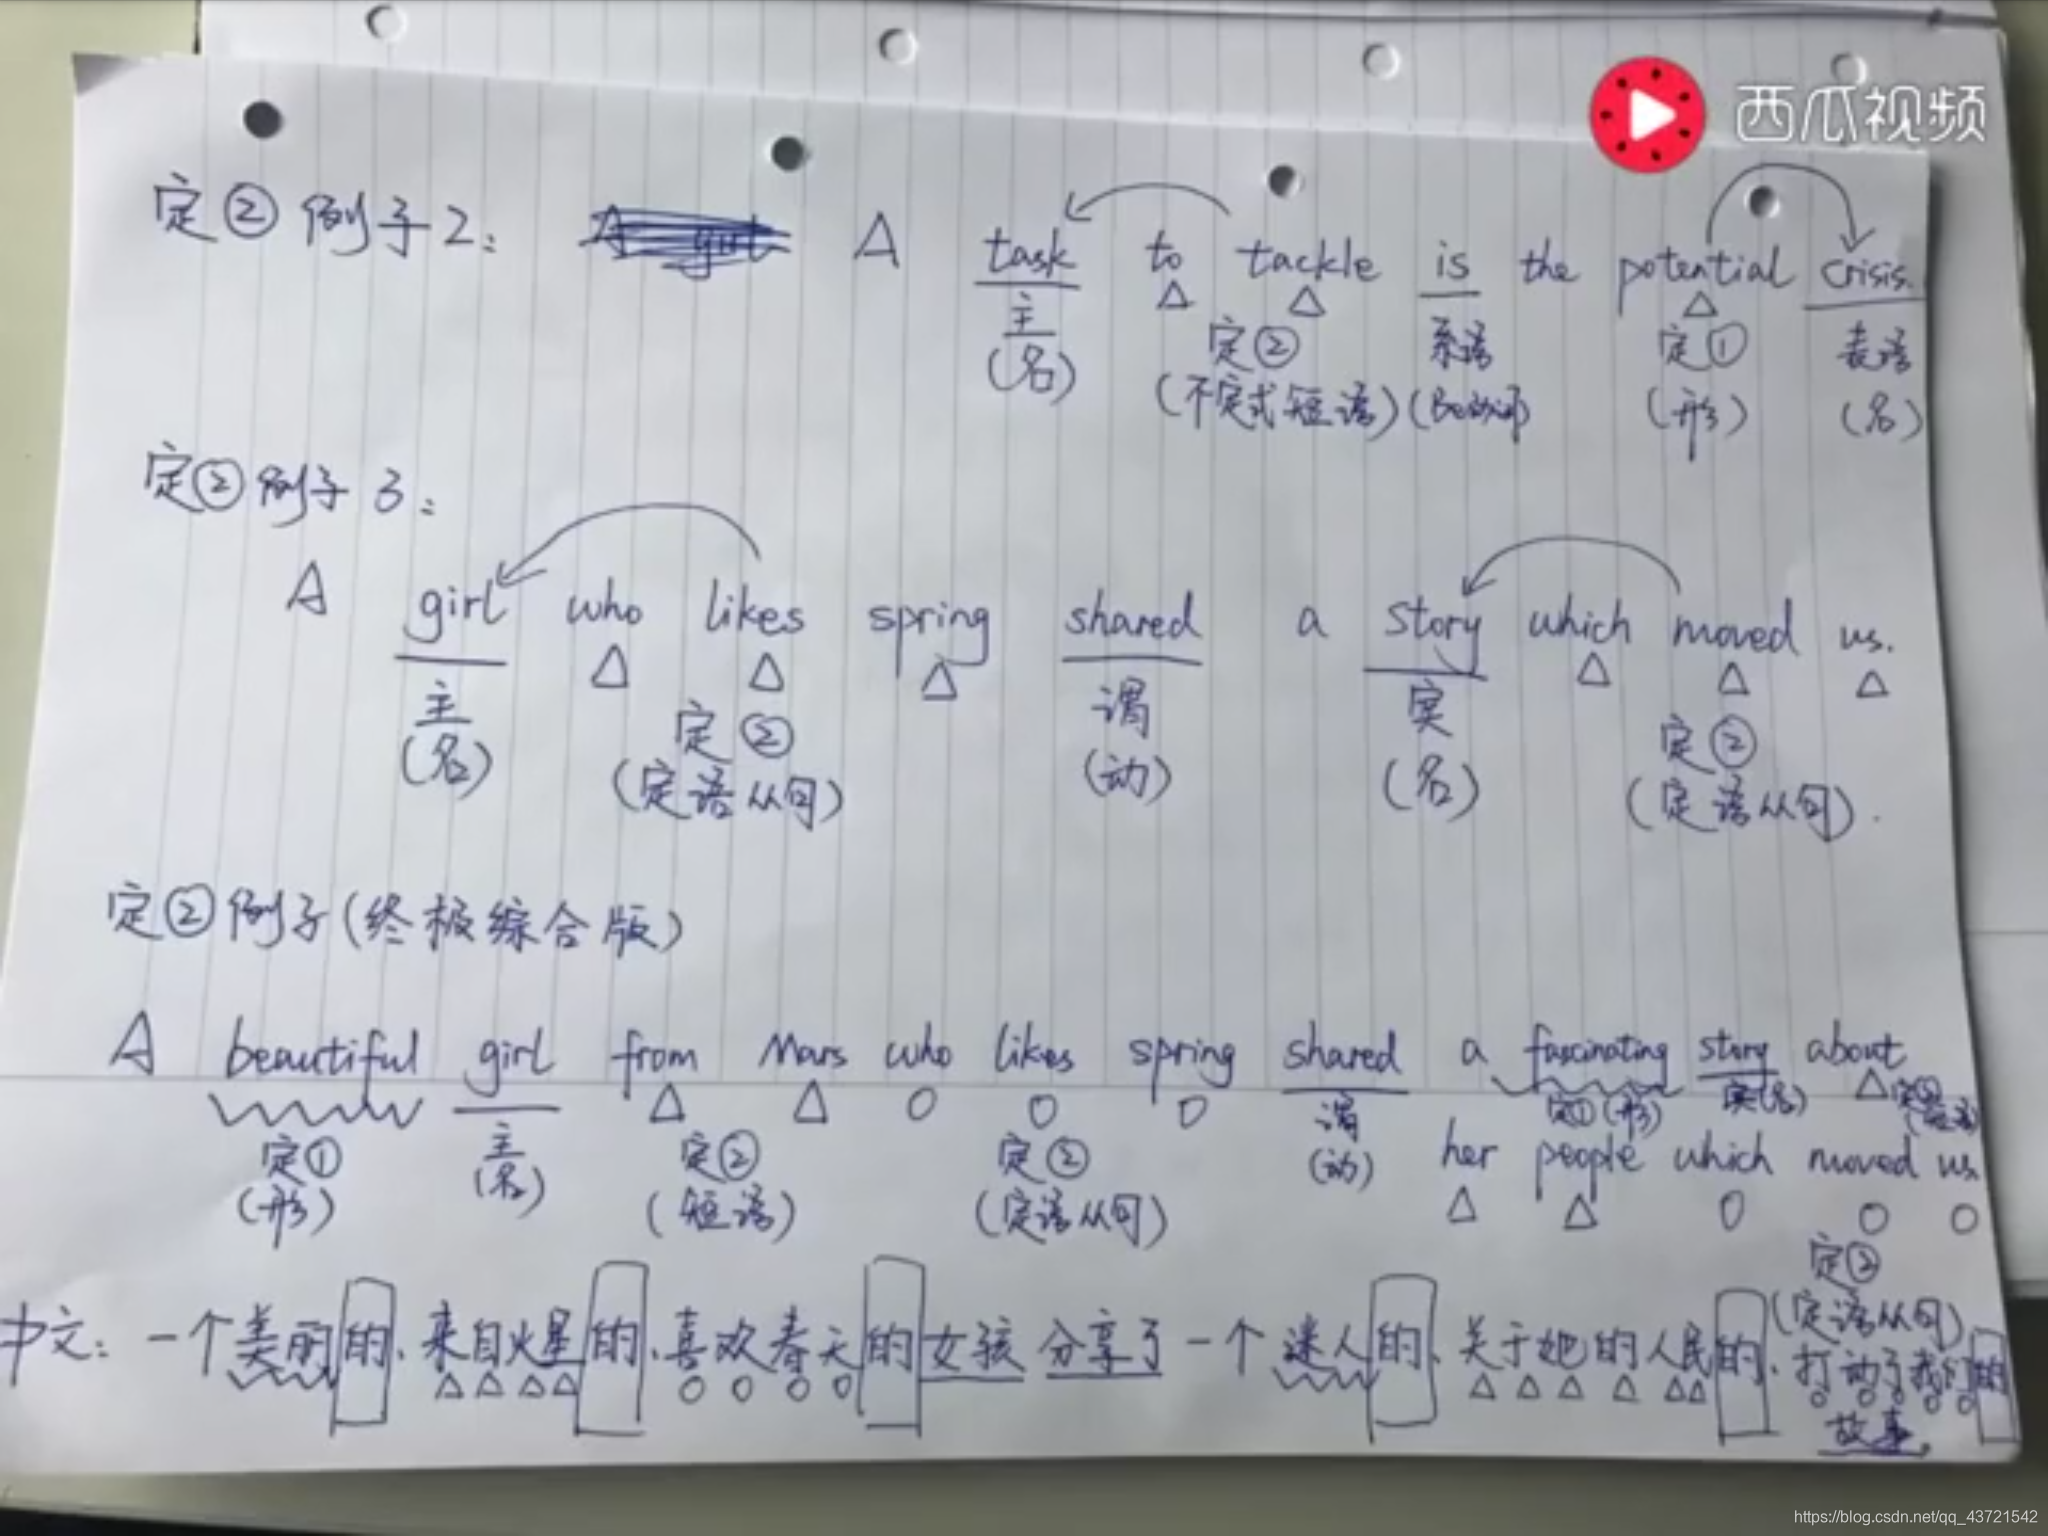 西瓜视频
定② 例子2: A task to tackle is the potential crisis.
主 定② 系语 定① 表语
(名) (不定式短语) (Be动词) (形) (名)
定② 例子3:
A girl who likes spring shared a story which moved us.
主 定② 谓 宾 定②
(名) (定语从句) (动) (名) (定语从句).
定② 例子(终极综合版)
A beautiful girl from Mars who likes spring shared a fascinating story about
定① 主 定② 定② 谓 定①(形) 宾(名) 定②
(形) (名) (短语) (定语从句) (动) her people which moved us.
定②
(定语从句)
中文: 一个美丽的、来自火星的、喜欢春天的女孩分享了一个迷人的、关于她的人民的、打动了我们的
故事.
https://blog.csdn.net/qq_43721542